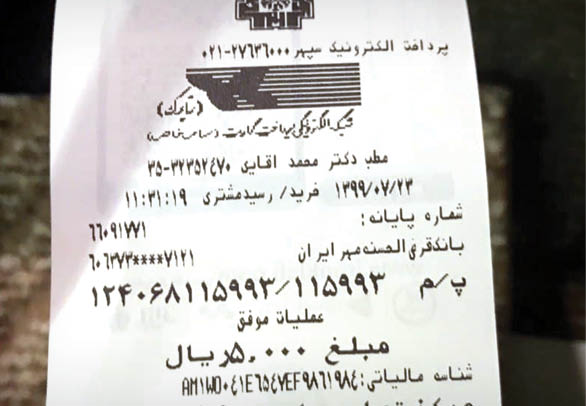 پرداخت الکترونیک سپهر ۰۲۱-۲۷۶۳۶۰۰۰
(شاپرک)
شبکه الکترونیکی پرداخت کارت (سهامی خاص)
مطب دکتر محمد اقایی ۳۵-۳۲۳۵۲۴۷۰
۱۳۹۹/۰۷/۲۳ خرید/ رسیدمشتری ۱۱:۳۱:۱۹
شماره پایانه: ۶۶۰۹۱۷۷۱
بانکقرض الحسنه مهر ایران ۶۰۶۳۷۳****۷۱۲۱
پ/م ۱۲۴۰۶۸۱۱۵۹۹۳/۱۱۵۹۹۳
عملیات موفق
مبلغ ۵۰,۰۰۰ریال
شناسه مالیاتی: